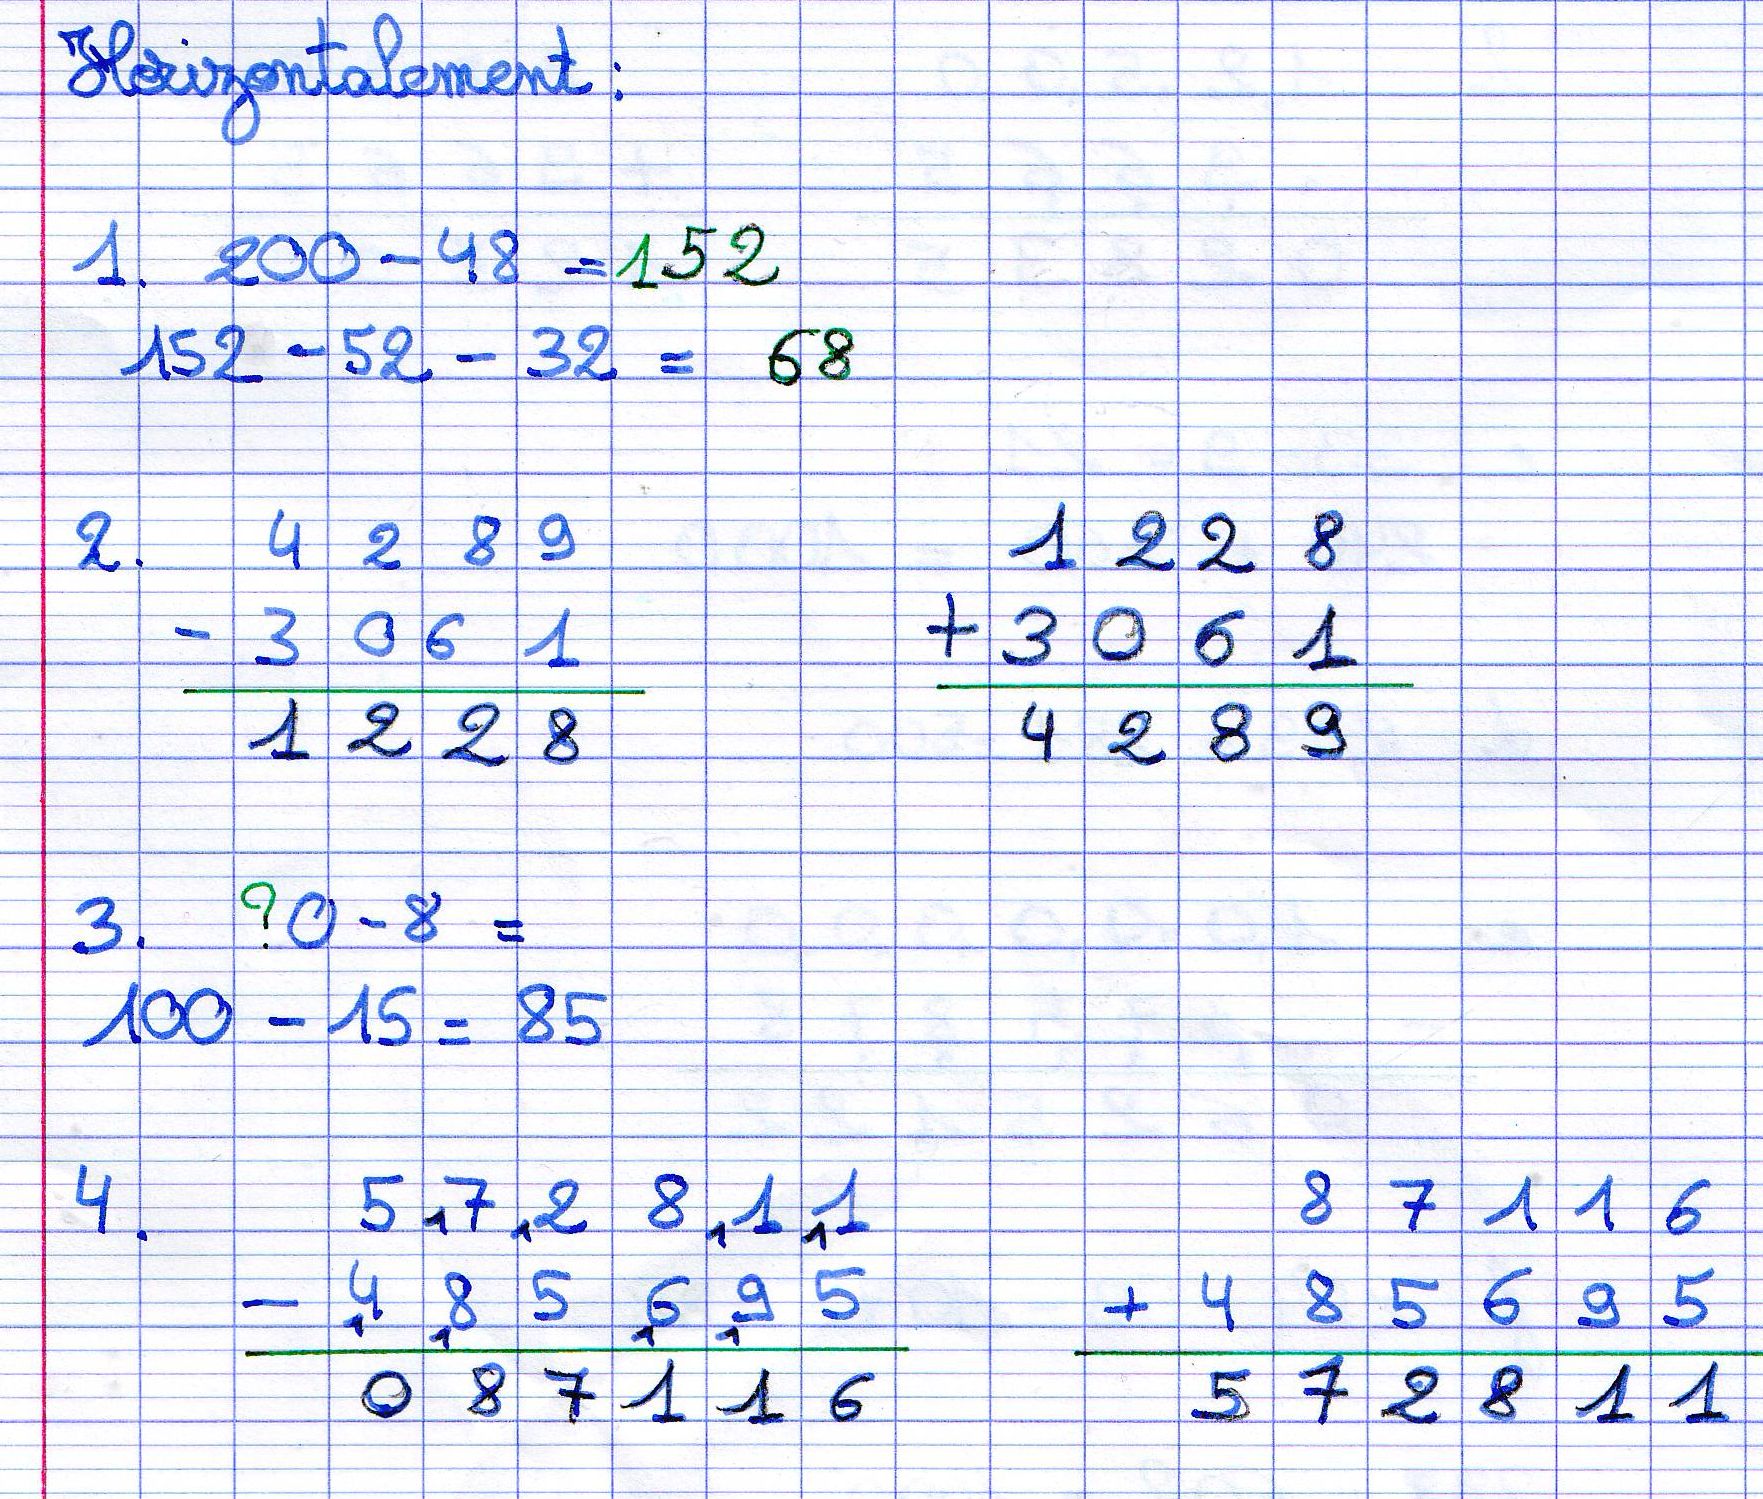 Horizontalement :
1. 200 - 48 = 152
152 - 52 - 32 = 68
2. 4 2 8 9
- 3 0 6 1
1 2 2 8
1 2 2 8
+ 3 0 6 1
4 2 8 9
3. ?0 - 8 =
100 - 15 = 85
4. 5 ,7 ,2 8 ,1 ,1
1 1 1 1
- 4 8 5 6 9 5
1 1 1 1
0 8 7 1 1 6
8 7 1 1 6
+ 4 8 5 6 9 5
5 7 2 8 1 1